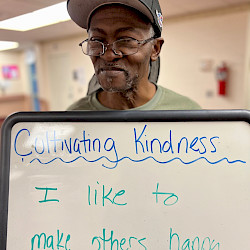 Cultivating Kindness
I like to
make others happy